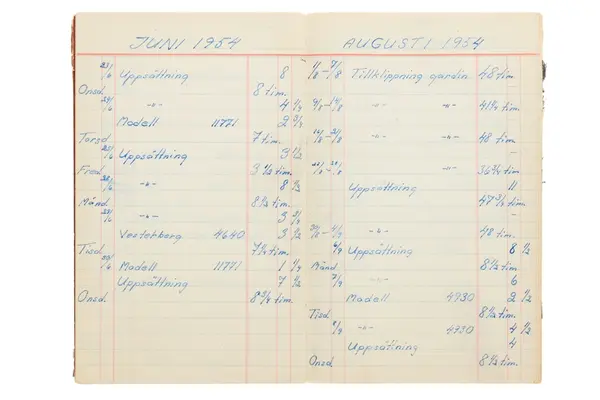 JUNI 1954
23/6 Uppsättning 8
Onsd. 8 tim.
24/6 -"- 4 1/4
Modell 11771 2 3/4
Torsd. 7 tim.
25/6 Uppsättning 3 1/2
Fred. 3 1/2 tim.
28/6 -"- 8 1/2
Månd. 8 1/2 tim.
29/6 -"- 3 3/4
Vesterberg 4640 3 1/2
Tisd. 7 1/4 tim.
30/6 Modell 11771 1 1/4
Uppsättning 7 1/2
Onsd. 8 3/4 tim.
AUGUSTI 1954
Tillklippning gardin. 48 tim
9/8-14/8 -"- -"- 41 1/4 tim.
-"- -"- 48 tim
-"- 36 3/4 tim.
Uppsättning 11
47 3/4 tim.
30/8-4/9 -"- 48 tim.
6/9 Uppsättning 8 1/2
Månd. 8 1/2 tim.
7/9 -"- 6
Modell 4930 2 1/2
Tisd. 8 1/2 tim.
8/9 -"- 4930 4 1/2
Uppsättning 4
Onsd 8 1/2 tim.